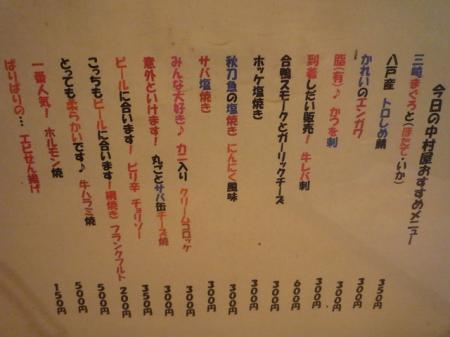 今日の中村屋おすすめメニュー
三崎まぐろと(ほたて・いか) 350円
八戸産 トロしめ鯖 300円
かれいのエンガワ 300円
脂(有)♪ かつを刺 300円
到着しだい販売! 牛レバ刺 600円
合鴨スモークとガーリックチーズ 300円
ホッケ塩焼き 300円
秋刀魚の塩焼き にんにく風味 300円
サバ塩焼き 300円
みんな大好き♪ カニ入り クリームコロッケ 300円
意外といけます! 丸ごとサバ缶チーズ焼 300円
ビールに合います! ピリ辛 チョリソー 350円
こっちもビールに合います! 網焼き フランクフルト 200円
とっても柔らかいです♪ 牛ハラミ焼 500円
一番人気! ホルモン焼 500円
ぱりぱりの… エビせん揚げ 150円